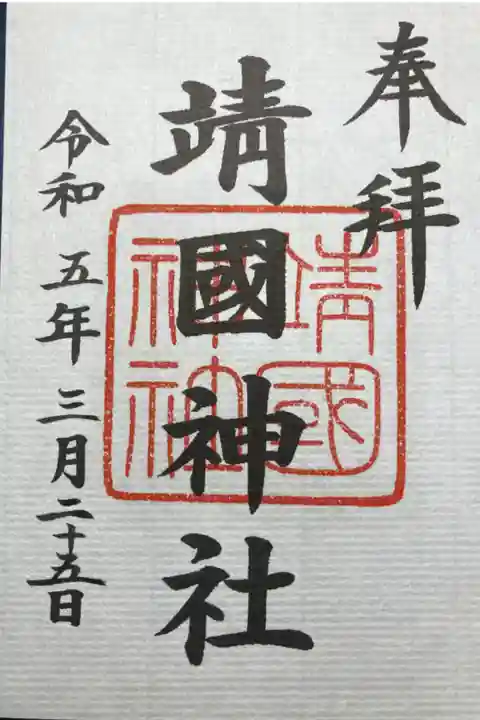 奉拜
靖國神社
靖國
神社
令和五年三月二十五日